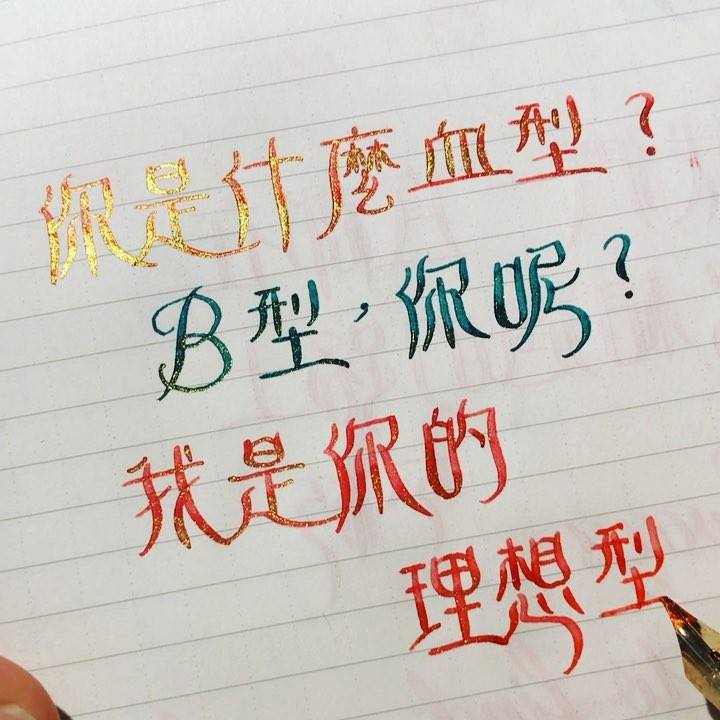 你是什麼血型？
B型，你呢？
我是你的
理想型